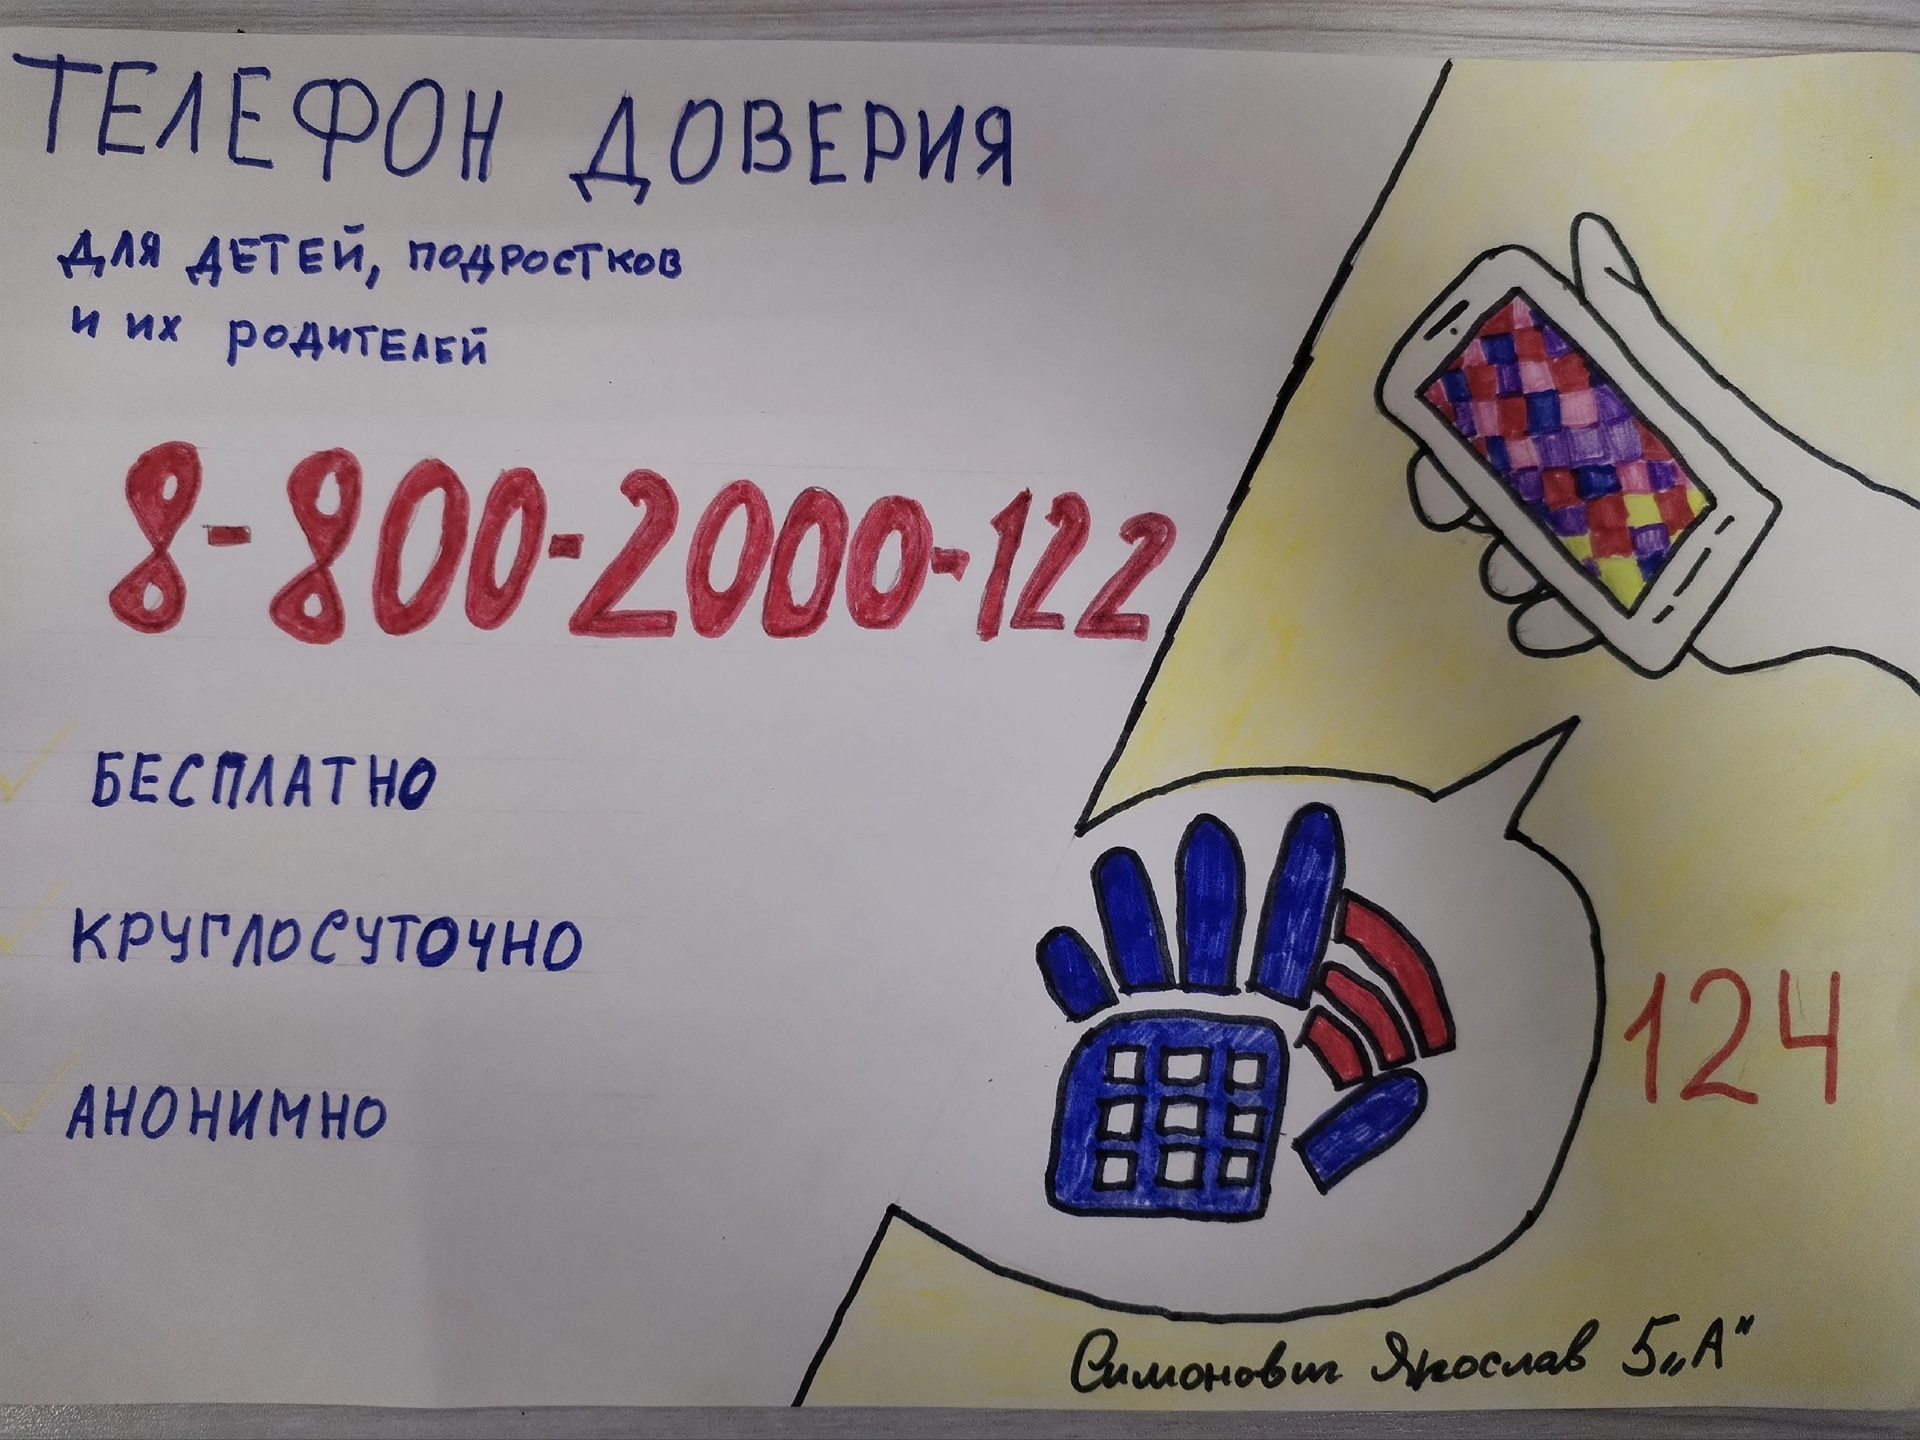 ТЕЛЕФОН ДОВЕРИЯ
для детей, подростков
и их родителей
8-800-2000-122
БЕСПЛАТНО
КРУГЛОСУТОЧНО
АНОНИМНО
124
Симонович Ярослав 5„А"